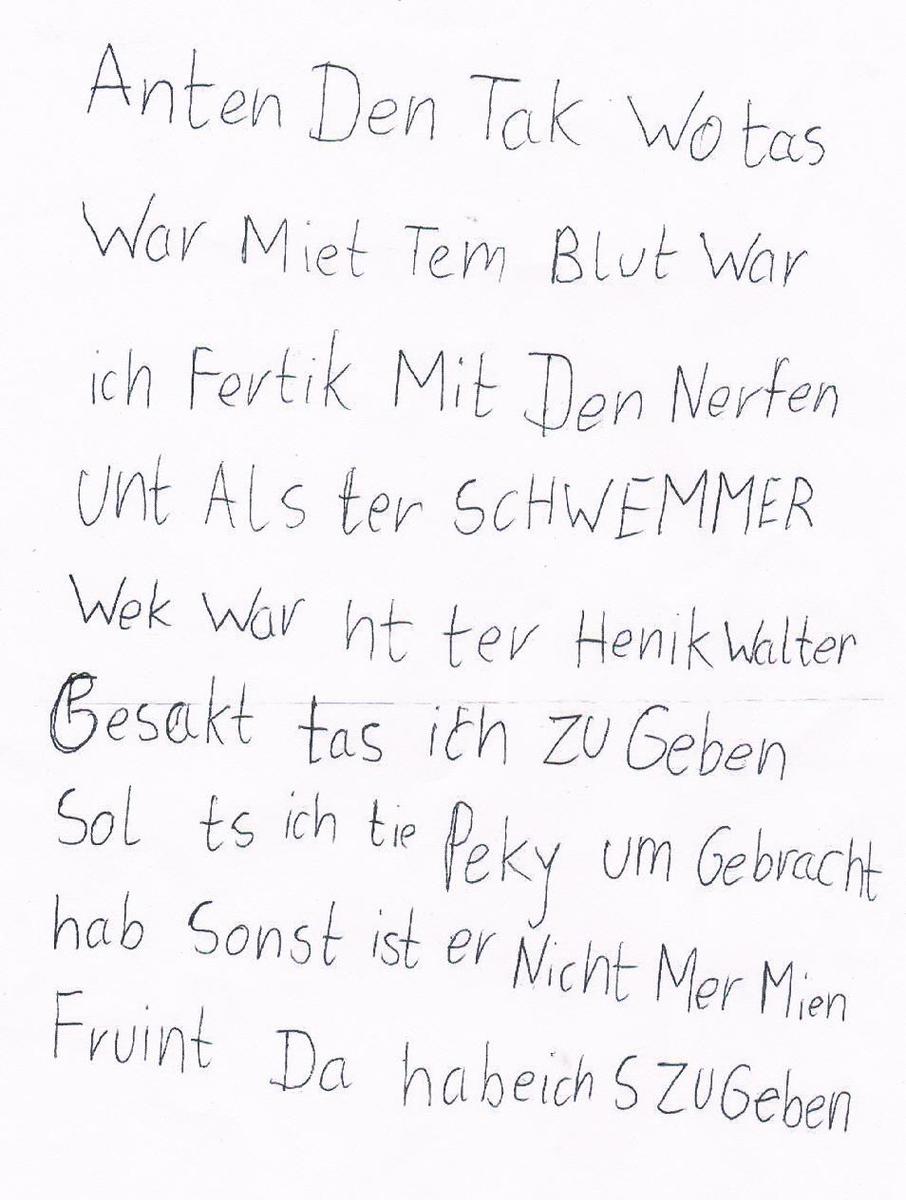 Anten Den Tak Wo tas
War Miet Tem Blut War
ich Fertik Mit Den Nerfen
unt Als ter SCHWEMMER
Wek War ht ter Henik Walter
Gesakt tas ich zu Geben
Sol ts ich tie Peky um Gebracht
hab Sonst ist er Nicht Mer Mien
Fruint Da habeich S ZUGeben